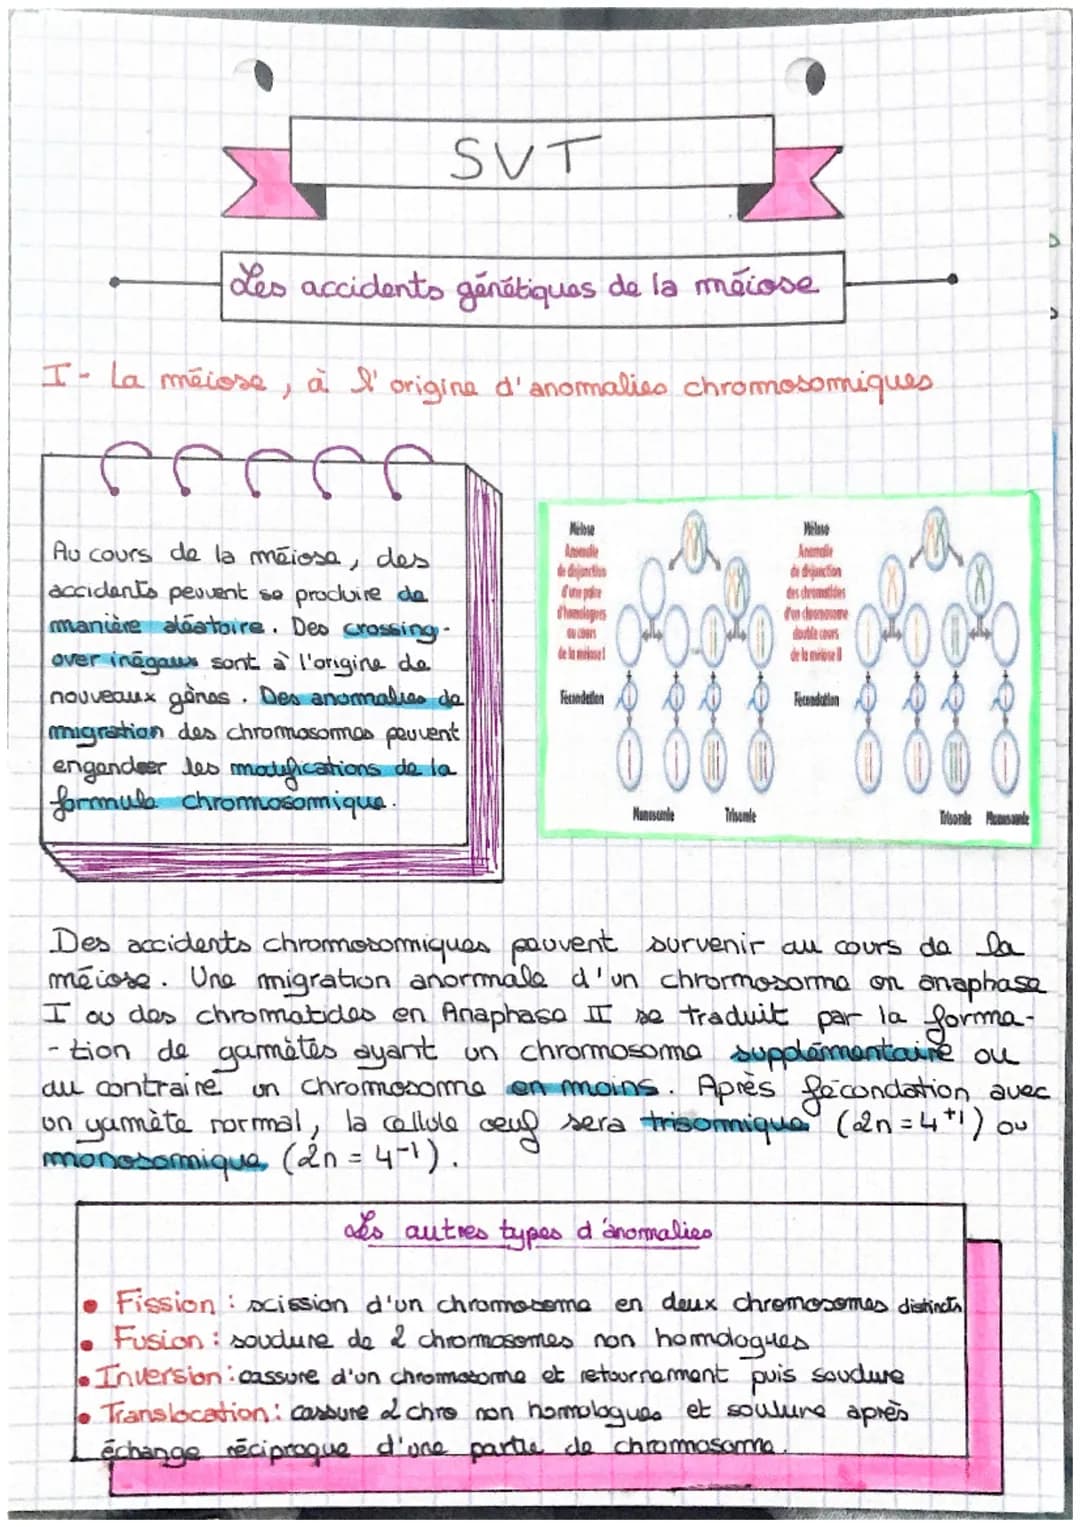 SVT
Les accidents génétiques de la méiose
I- La méiose, à l'origine d'anomalies chromosomiques
Au cours de la méiose, des
accidents peuvent se produire de
manière aléatoire. Des crossing-
over inégaux sont à l'origine de
nouveaux gènes. Des anomalies de
migration des chromosomes peuvent
engendrer les modifications de la
formule chromosomique.
Méiose
Anomalie
de disjonction
d'une paire
d'homologues
au cours
de la méiose I
Fécondation
Monosomie
Trisomie
Méiose
Anomalie
de disjonction
des chromatides
d'un chromosome
double cours
de la méiose II
Fécondation
Trisomie Monosomie
Des accidents chromosomiques peuvent survenir au cours de la
méiose. Une migration anormale d'un chromosome en anaphase
I ou des chromatides en Anaphase II se traduit par la forma-
-tion de gamètes ayant un chromosome supplémentaire ou
au contraire un chromosome en moins. Après fécondation avec
un gamète normal, la cellule oeuf sera trisomique (2n = 4+1) ou
monosomique (2n = 4-1).
Les autres types d'anomalies
• Fission : scission d'un chromosome en deux chromosomes distincts
• Fusion : soudure de 2 chromosomes non homologues
• Inversion : cassure d'un chromosome et retournement puis soudure
• Translocation : cassure 2 chro non homologues et soudure après
échange réciproque d'une partie de chromosome.